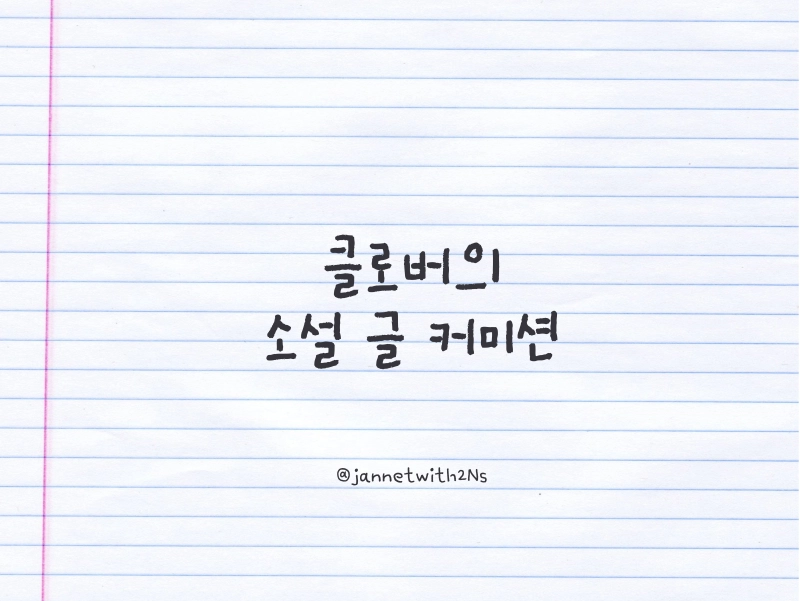 클로버의
소설 글 커미션
@jannetwith2Ns